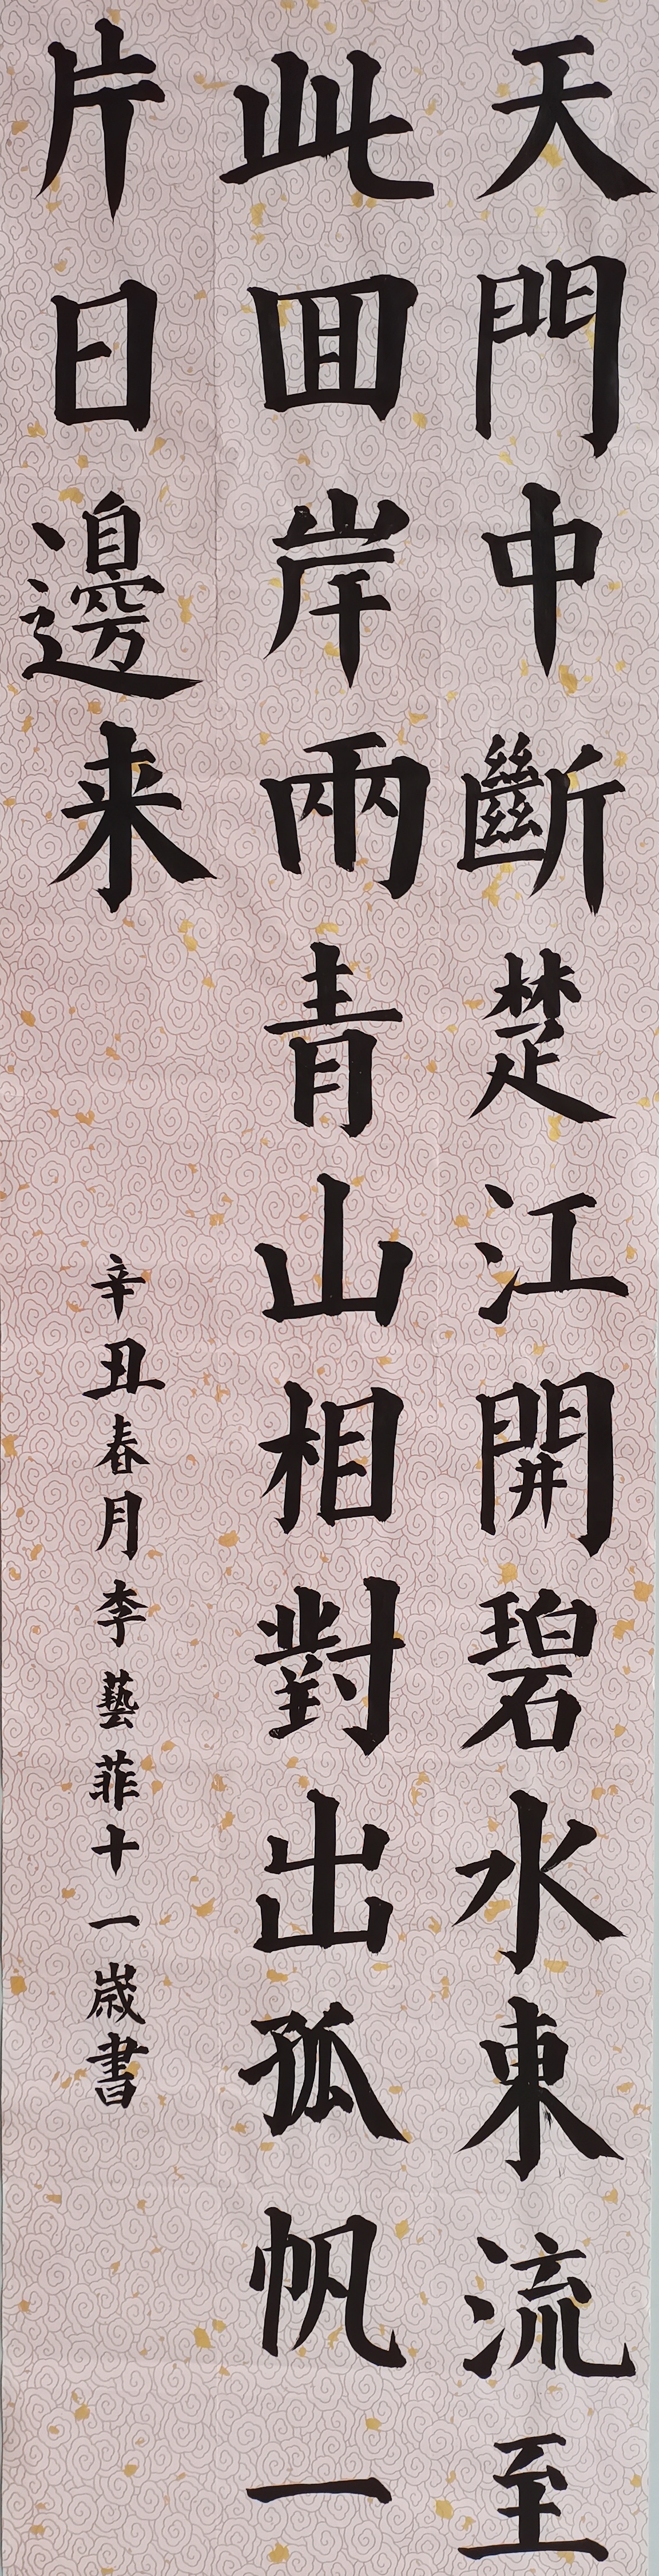 天門中斷楚江開碧水東流至
此囬岸兩青山相對出孤帆一
片日邊来
辛丑春月李藝菲十一歲書